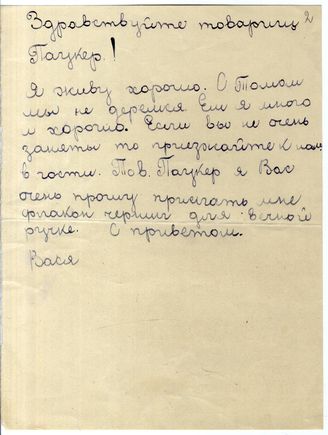 Здравствуйте товарищ 2
Паукер!
Я живу хорошо. С Томом
мы не деремся. Ем я много
и хорошо. Если вы не очень
заняты то приезжайте к нам
в гости. Тов. Паукер я Вас
очень прошу прислать мне
флакон чернил для вечной
ручке. С приветом.
Вася